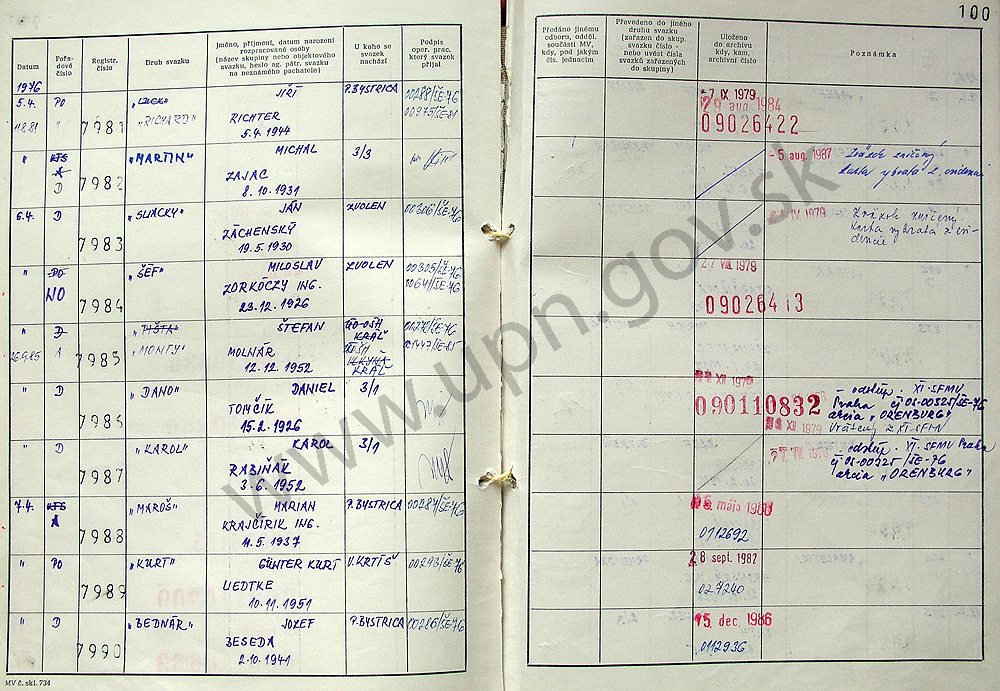 100
Datum
Pořa-
dové
číslo
Registr.
číslo
Druh svazku
Jméno, příjmení, datum narození
rozpracované osoby
(název skupiny nebo objektového
svazku, heslo ag. pátr. svazku
na neznámého pachatele)
U koho se
svazek
nachází
Podpis
oper. prac.
který svazek
přijal
Předáno jinému
odboru, odděl.
součásti MV,
kdy, pod jakým
čís. jednacím
Převedeno do jiného
druhu svazku
(zařazen do skup.
svazku číslo -
nebo uvést čísla
svazků zařazených
do skupiny)
Uloženo
do archivu
kdy, kam,
archivní číslo
Poznámka
1976
5.4. PO JIŘÍ P.BYSTRICA 00288/ŠE-76 -7 IX 1979
11.8.81 " 7981 "RICHARD" RICHTER 00975/ŠE-81 29 aug 1984
5.4.1944 09026422
" KTS "MARTIN" MICHAL 3/3 -5 aug. 1987 Zväzok zničený
A D 7982 ZAJAC karta vybratá z evidencie
8.10.1931
6.4. D "SLIACKY" JÁN ZVOLEN 00306/ŠE-76 IV 1979 Zväzok zničený.
7983 ZÁCHENSKÝ karta vybratá z evi-
19.5.1930 dencie
" PO "ŠÉF" MILOSLAV ZVOLEN 00305/ŠE-76 27 VII 1979
NO 7984 ZORKÓCZY ING. 00641/ŠE-76
23.12.1926 09026413
" D "PIŠTA" ŠTEFAN KRÁĽ 00270/ŠE-76
26.9.85 A 7985 "MONTY" MOLNÁR 001447/ŠE-85
12.12.1952 KRÁĽ
" D "DANO" DANIEL 3/1 XII 1976 - odstúp. XI. SFMV
7986 TOMČÍK 090110832 Praha čj 0S-00325/ŠE-76
15.2.1926 XII 1979 arcia "ORENBURG"
Vrátený z XI. SFMV
" D "KAROL" KAROL 3/1 IV 1976 - odstúp. XI. SFMV Praha
7987 RABIŇÁK čj 0S-00325/ŠE-76
3.6.1952 arcia "ORENBURG"
7.4. KTS "MAROŠ" MARIAN P.BYSTRICA 00287/ŠE-76 mája
A 7988 KRAJČÍRIK ING. 0112692
11.5.1937
" PO "KURT" GÜNTER KURT V.KRTÍŠ 00293/ŠE-76 28 sept. 1982
7989 UEDTKE 027240
10.11.1951
" D "BEDNÁR" JOZEF P.BYSTRICA 00286/ŠE-76 15 dec. 1986
7990 BESEDA 0112936
2.10.1941
MV č. skl. 734
www.upn.gov.sk